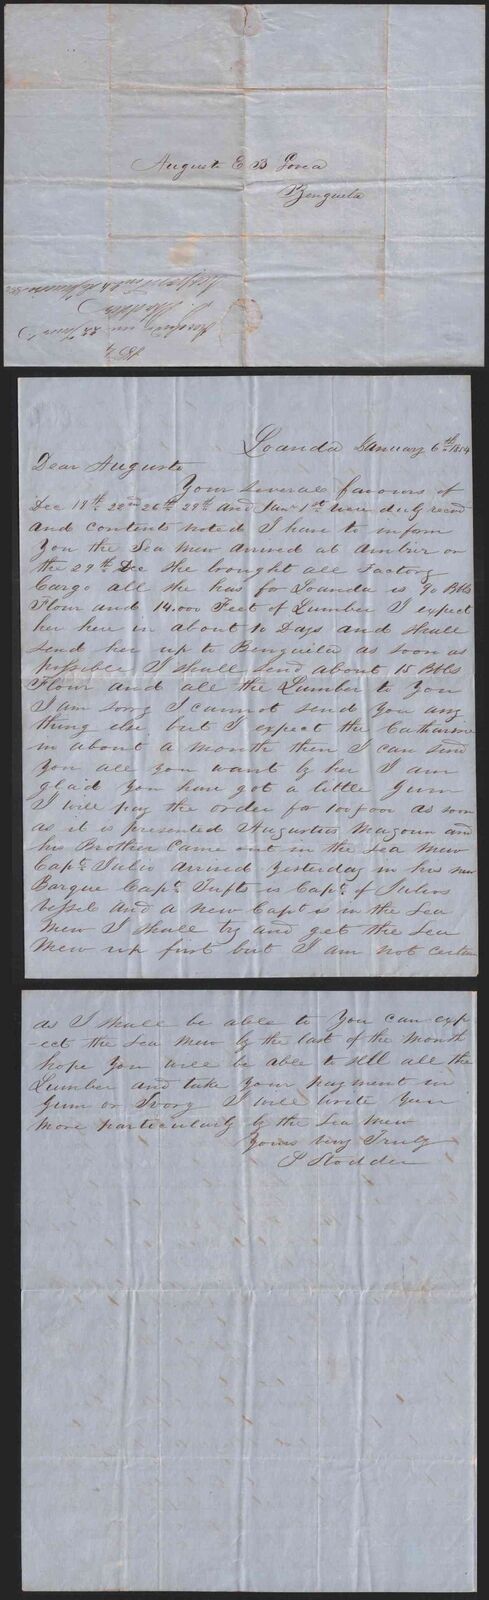 Auguste E B Gova
Benguela
1854
Loanda January 6th 1854
Dear Auguste
Your several favours of
Dec 18th 22nd 26th 29th and Jany 1st were duly recvd
and contents noted I have to inform
You the Sea Mew arrived at on
the 29th Dec She brought all Factory
Cargo all she has for Loanda is 90 Bbls
Flour and 14.000 Feet of Lumber I expect
her here in about 10 Days and shall
send her up to Benguela as soon as
possible I shall send about 15 Bbls
Flour and all the Lumber to You
I am sorry I cannot send You any
thing else but I expect the Catharine
in about a month then I can send
You all you want by her I am
glad You have got a little Gum
I will pay the order for 100$000 as soon
as it is presented Augustus Magoun and
his Brother Came out in the Sea Mew
Capt. Julio arrived Yesterday in his new
Barque Capt. Tufts is Capt. of Julios
vessel and a new Capt is in the Sea
Mew I shall try and get the Sea
Mew up first but I am not certain
as I shall be able to You can exp-
-ect the Sea Mew by the last of the Month
hope You will be able to sell all the
Lumber and take Your payment in
Gum or Ivory I will write You
more particularly by the Sea Mew
Yours very Truly
S Stodder